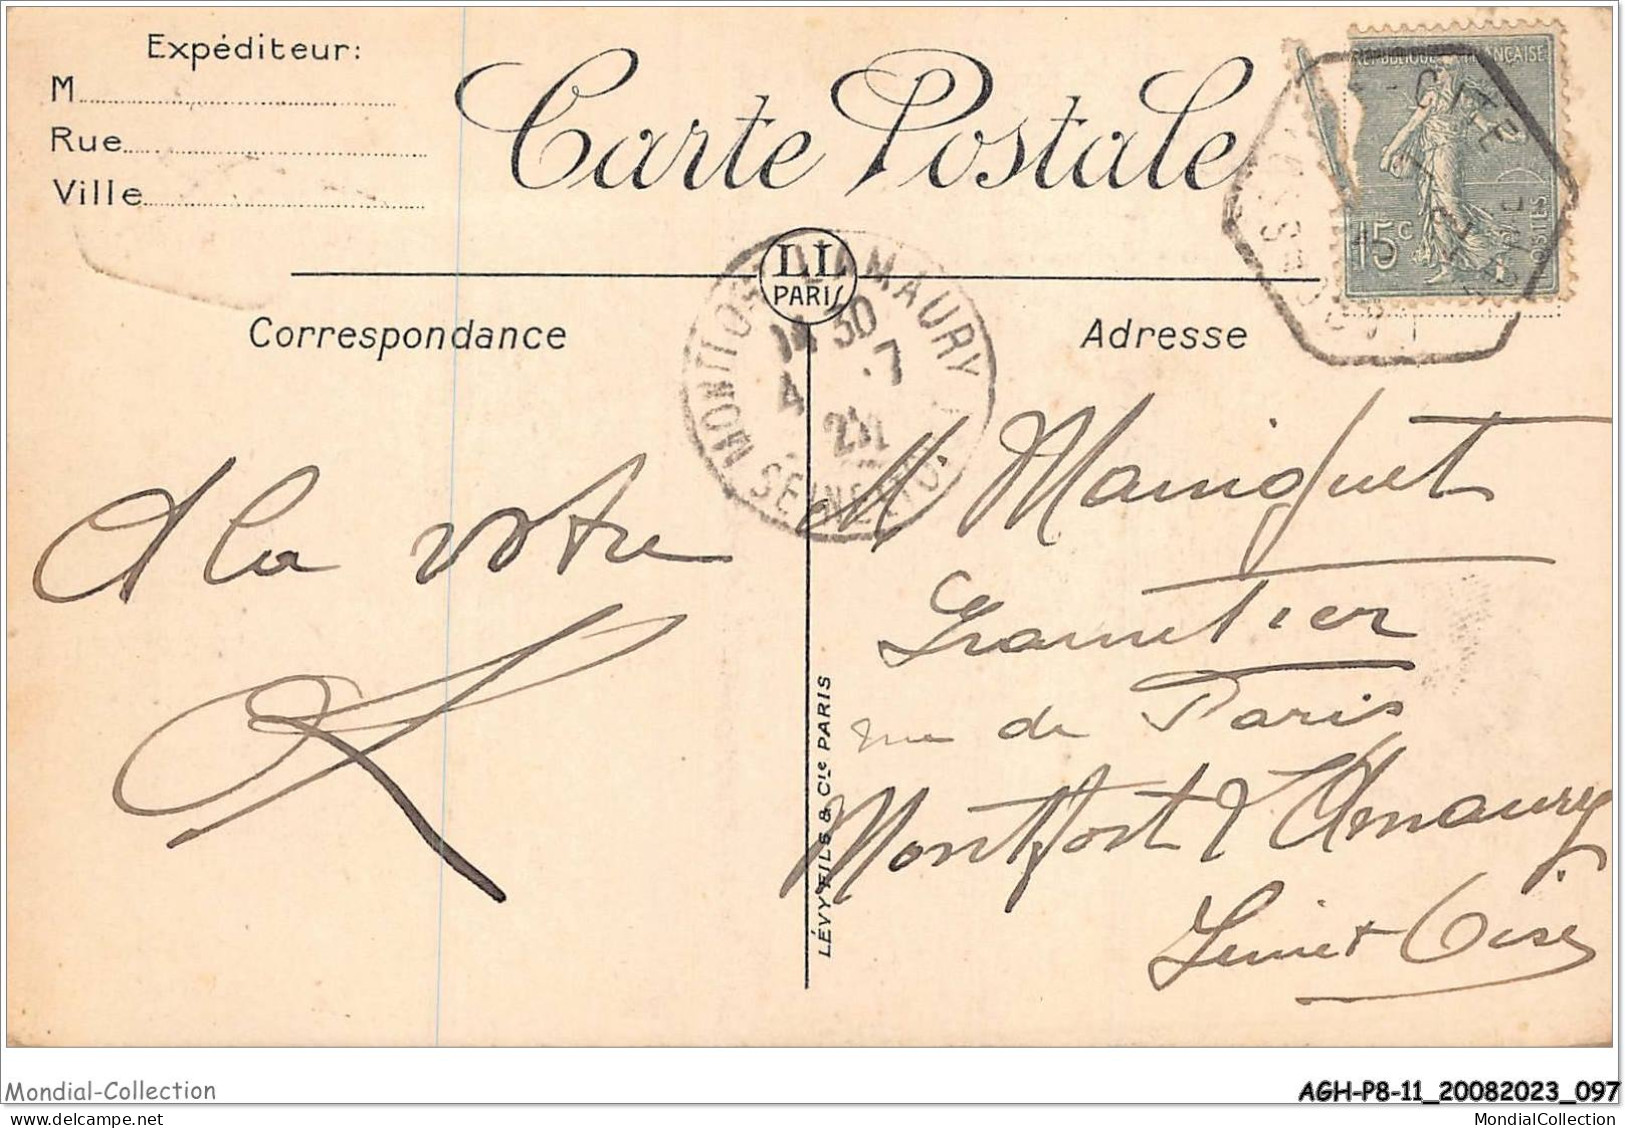 Expéditeur:
M
Rue
Ville
Carte Postale
RÉPUBLIQUE FRANÇAISE
15c
POSTES
CITE
LL
PARIS
MONTFORT L'AMAURY
14 30
4 .7
SEINE ET O.
Correspondance
Adresse
A la votre
M Mainguet
Grainetier
rue de Paris
Montfort l'Amaury
Seine et Oise
LÉVY FILS & Cie PARIS
Mondial-Collection
AGH-P8-11_20082023_097
MondialCollection